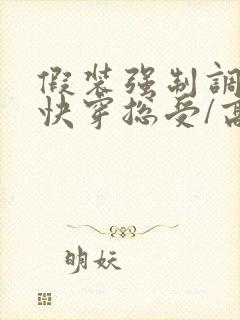 假装强制調
快穿总受/高
明妖